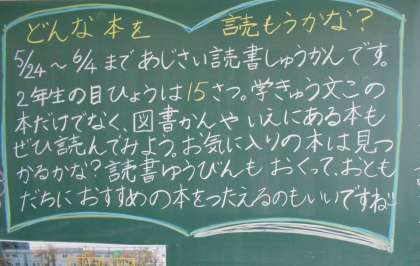 どんな本を 読もうかな?
5/24～6/4まであじさい読書しゅうかんです。
2年生の目ひょうは15さつ。学きゅう文この
本だけでなく、図書かんやいえにある本も
ぜひ読んでみよう。お気に入りの本は見つ
かるかな?読書ゆうびんもおくって、おとも
だちにおすすめの本をつたえるのもいいですね